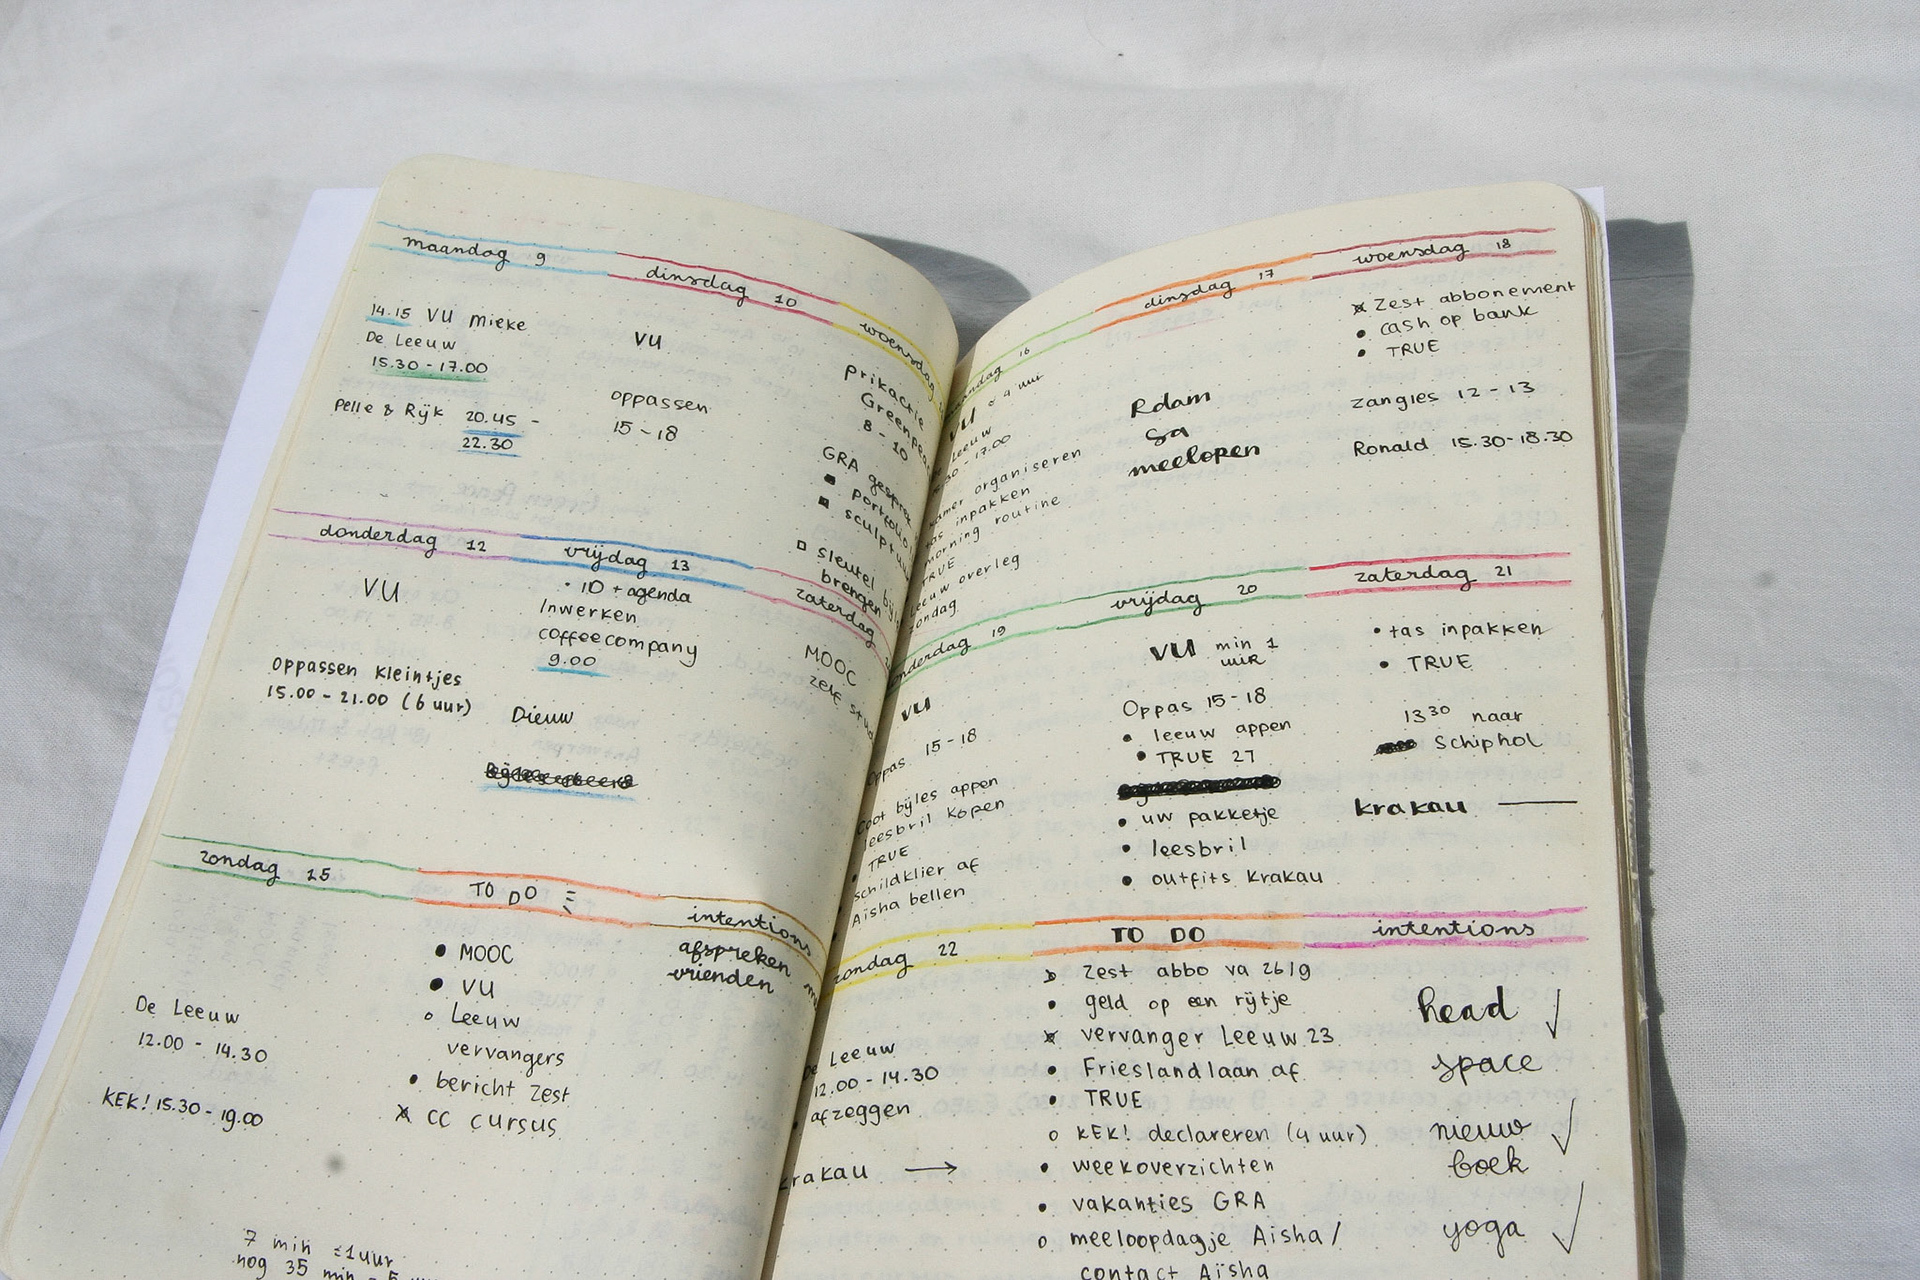 maandag 9
14.15 VU Mieke
De Leeuw
15.30 - 17.00
Pelle & Rijk 20.45 -
22.30
dinsdag 10
VU
oppassen
15 - 18
woensdag
prikactie
Greenpeace
8 - 10
GRA gesprek
■ portfolio
■ sculptuur
□ sleutel
brengen
donderdag 12
VU
oppassen kleintjes
15.00 - 21.00 (6 uur)
vrijdag 13
• ID + agenda
Inwerken
coffeecompany
9.00
Dieuw
zaterdag
MOOC
zelf
zondag 15
De Leeuw
12.00 - 14.30
KEK! 15.30 - 19.00
TO DO
• MOOC
• VU
○ Leeuw
vervangers
• bericht Zest
x CC cursus
intentions
afspreken
vrienden
7 min = 1 uur
nog 35 min = 5
16
VU
4 uur
Leeuw
- 17.00
organiseren
inpakken
morning routine
TRUE
Leeuw overleg
zondag
dinsdag 17
Rdam
sa
meelopen
woensdag 18
x Zest abbonement
• cash op bank
• TRUE
zangles 12 - 13
Ronald 15.30-18.30
19
VU
oppas 15 - 18
bijles appen
leesbril kopen
• TRUE
schildklier af
Aïsha bellen
vrijdag 20
VU min 1
uur
Oppas 15 - 18
• leeuw appen
• TRUE 27
• uw pakketje
• leesbril
• outfits Krakau
zaterdag 21
• tas inpakken
• TRUE
13 30 naar
Schiphol
Krakau
zondag 22
De Leeuw
12.00 - 14.30
afzeggen
Krakau →
TO DO
Zest abbo va 26/9
• geld op een rijtje
x vervanger Leeuw 23
• Frieslandlaan af
• TRUE
○ KEK! declareren (4 uur)
• weekoverzichten
• vakanties GRA
○ meeloopdagje Aisha/
contact Aïsha
intentions
head ✓
space
nieuw ✓
boek
yoga ✓